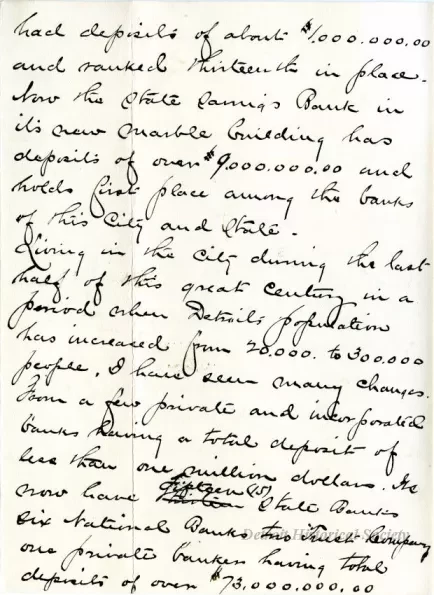 had deposits of about $1,000.000.00
and ranked thirteenth in place.
Now the State Savings Bank in
its new marble building has
deposits of over $9.000.000.00 and
holds first place among the banks
of this City and State.
Living in the City during the last
half of this great century in a
period when Detroits population
has increased from 20.000. to 300.000
people, I have seen many changes.
From a few private and incorporated
banks having a total deposit of
less than one million dollars. We
now have fifteen (15) State Banks
six National Banks two Trust Company
one private banker having total
deposits of over $73,000,000.00
Detroit Historical Society